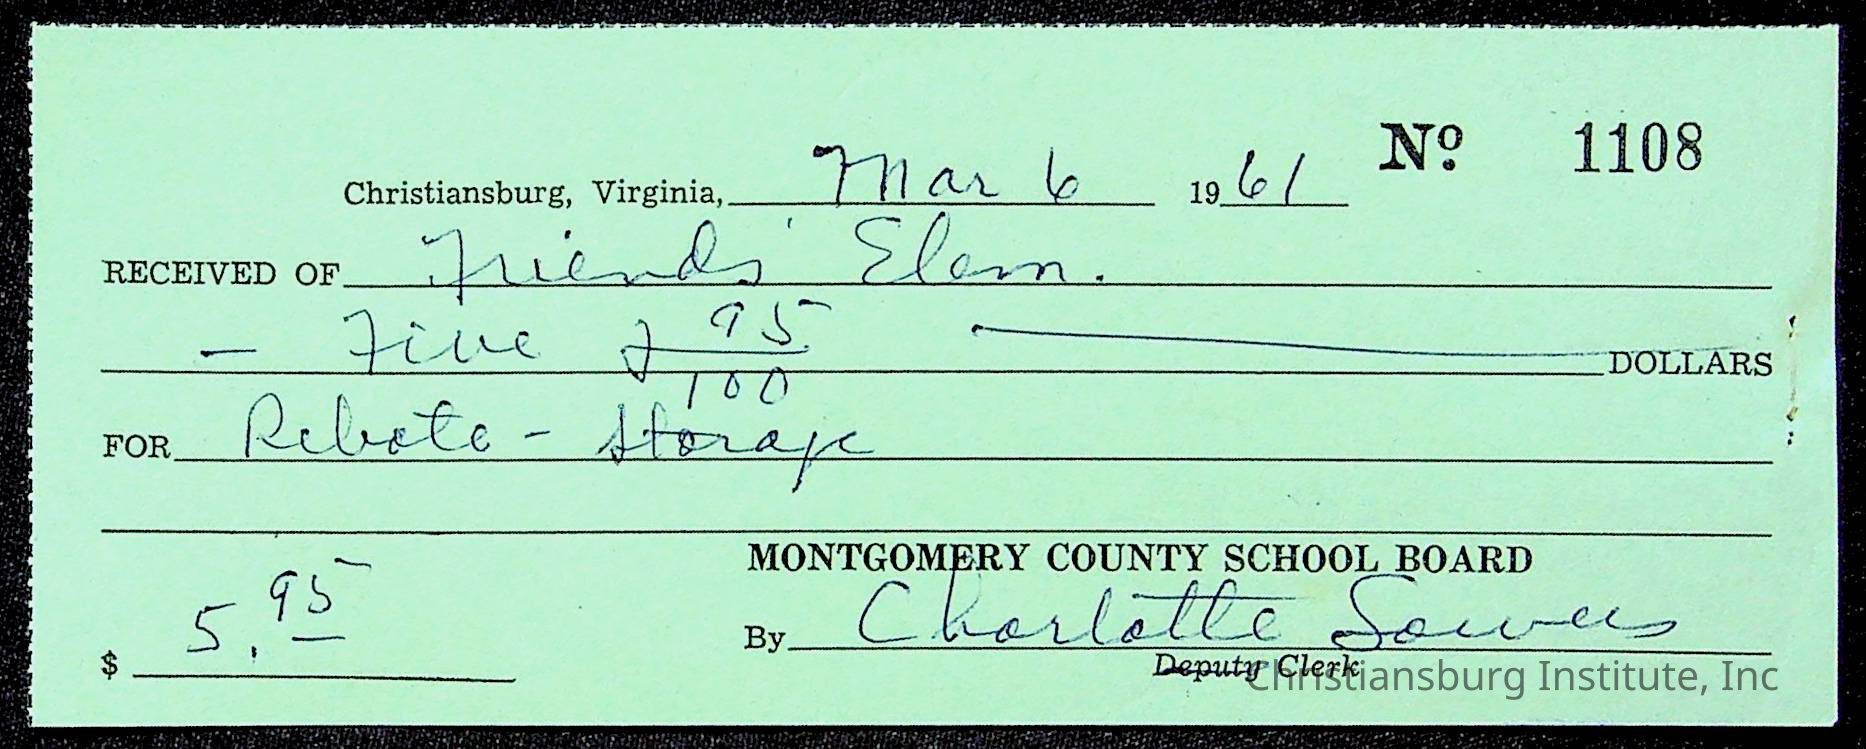 Nº 1108
Christiansburg, Virginia, Mar 6 1961
RECEIVED OF Friends' Elem.
- Five & 95/100 — DOLLARS
FOR Rebate - Storage
MONTGOMERY COUNTY SCHOOL BOARD
$ 5.95 By Charlotte Sowers
Deputy Clerk
Christiansburg Institute, Inc